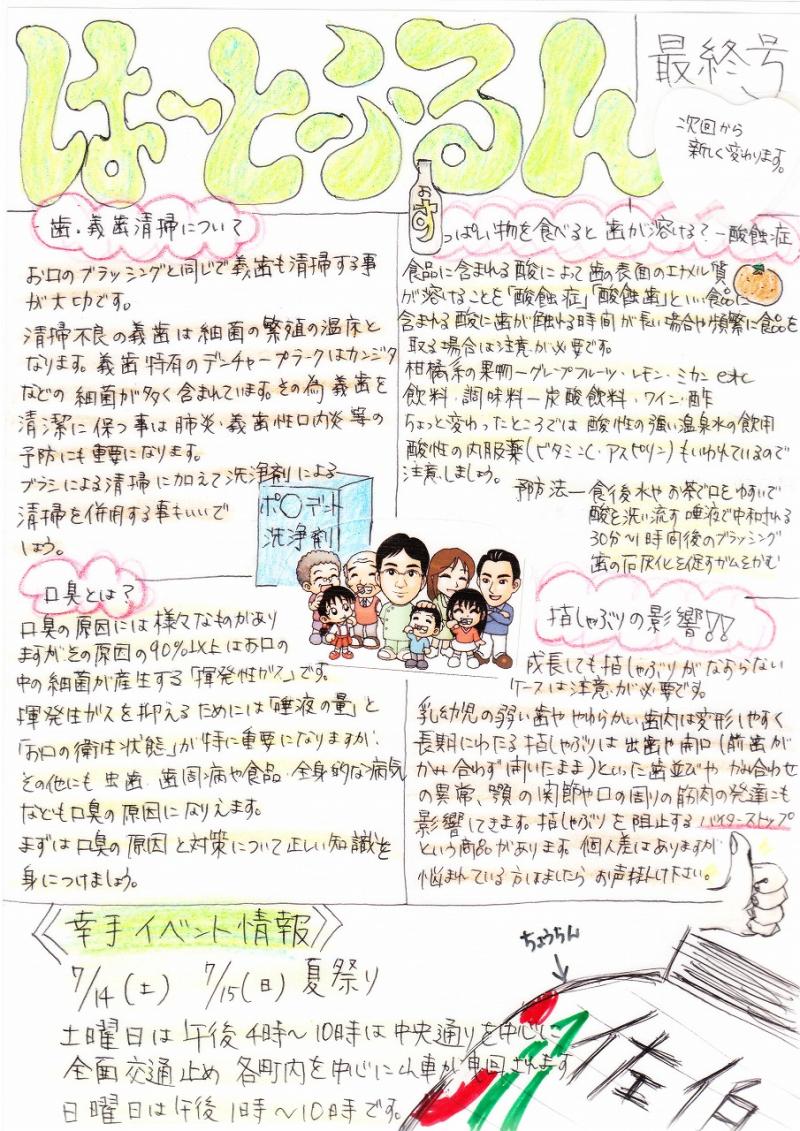 はーとふるん
最終号
次回から
新しく変わります。
歯・義歯清掃について
お口のブラッシングと同じで義歯も清掃する事
が大切です。
清掃不良の義歯は細菌の繁殖の温床と
なります。義歯特有のデンチャープラークはカンジタ
などの細菌が多く含まれています。その為義歯を
清潔に保つ事は肺炎・義歯性口内炎等の
予防にも重要になります。
ブラシによる清掃に加えて洗浄剤による
清掃を併用する事もいいで
しょう。
ポ〇デント
洗浄剤
おすっぱい物を食べると歯が溶ける?ー酸蝕症
食品に含まれる酸によって歯の表面のエナメル質
が溶けることを「酸蝕症」「酸蝕歯」といい食品に
含まれる酸に歯が触れる時間が長い場合や頻繁に食品を
取る場合は注意が必要です。
柑橘系の果物ーグレープフルーツ・レモン・ミカン etc
飲料・調味料ー炭酸飲料・ワイン・酢
ちょっと変わったところでは酸性の強い温泉水の飲用
酸性の内服薬(ビタミンC・アスピリン)もいわれているので
注意しましょう。
予防法ー食後水やお茶で口をゆすいで
酸を洗い流す 唾液で中和される
30分～1時間後のブラッシング
歯の石灰化を促すガムをかむ
口臭とは?
口臭の原因には様々なものがあり
ますがその原因の90%以上はお口の
中の細菌が産生する「揮発性ガス」です。
揮発性ガスを抑えるためには「唾液の量」と
「お口の衛生状態」が特に重要になりますが、
その他にも虫歯・歯周病や食品・全身的な病気
なども口臭の原因になりえます。
まずは口臭の原因と対策について正しい知識を
身につけましょう。
指しゃぶりの影響!!
成長しても指しゃぶりがなおらない
ケースは注意が必要です。
乳幼児の弱い歯ややわらかい歯肉は変形しやすく
長期にわたる指しゃぶりは出歯や開口(前歯が
かみ合わず開いたまま)といった歯並びやかみ合わせ
の異常、顎の関節や口の周りの筋肉の発達にも
影響してきます。指しゃぶりを阻止するバイターストップ
という商品があります。個人差はありますが
悩まれている方はましたらお声掛け下さい。
《幸手イベント情報》
7/14(土) 7/15(日)夏祭り
土曜日は午後4時～10時は中央通りを中心に
全面交通止め 各町内を中心に山車が曳回されます
日曜日は午後1時～10時です。
ちょうちん
佐伯